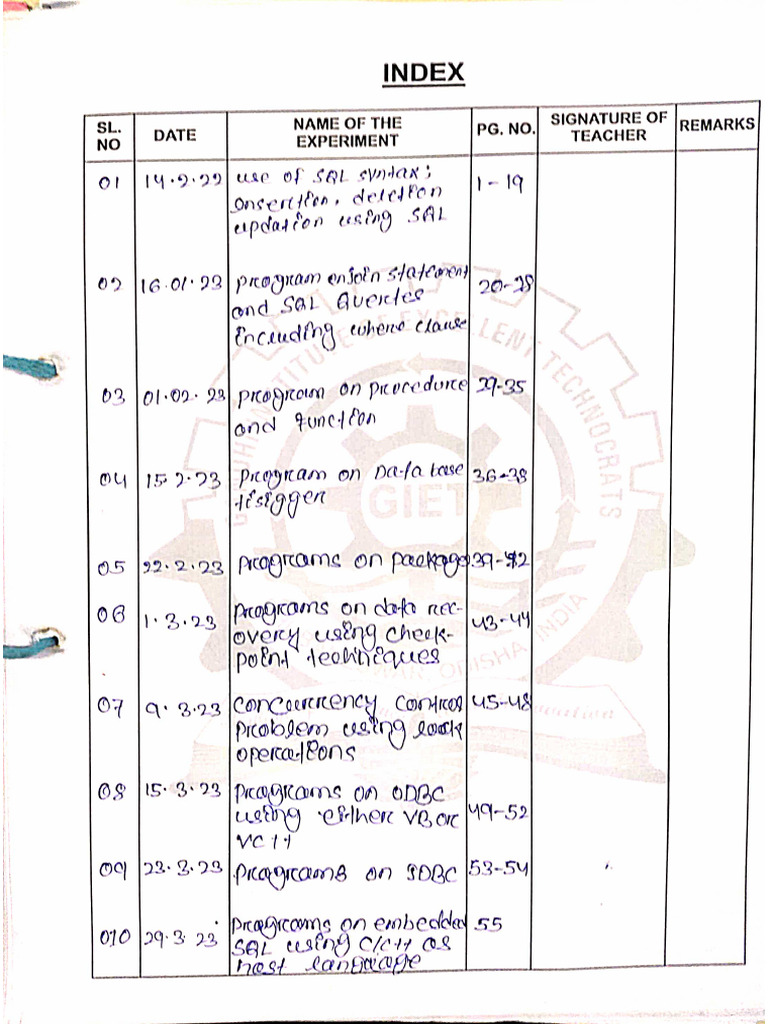 INDEX
SL. NO DATE NAME OF THE EXPERIMENT PG. NO. SIGNATURE OF TEACHER REMARKS
01 14.9.22 use of SQL syntax; 1-19
Insertion, deletion
updation using SQL
02 16.01.23 program on join statement 20-28
and SQL Queries
including where clause
03 01.02.23 program on procedure 29-35
and function
04 15.2.23 program on Data base 36-38
trigger
05 22.2.23 programs on package 39-42
06 1.3.23 programs on data rec- 43-44
overy using check-
point techniques
07 9.3.23 concurrency control 45-48
problem using lock
operations
08 15.3.23 programs on ODBC 49-52
using either VB or
VC++
09 23.3.23 programs on JDBC 53-54
010 29.3.23 programs on embedded 55
SQL using C/C++ as
host language
GIET
INSTITUTE OF EXCELLENT TECHNOCRATS
ODISHA INDIA